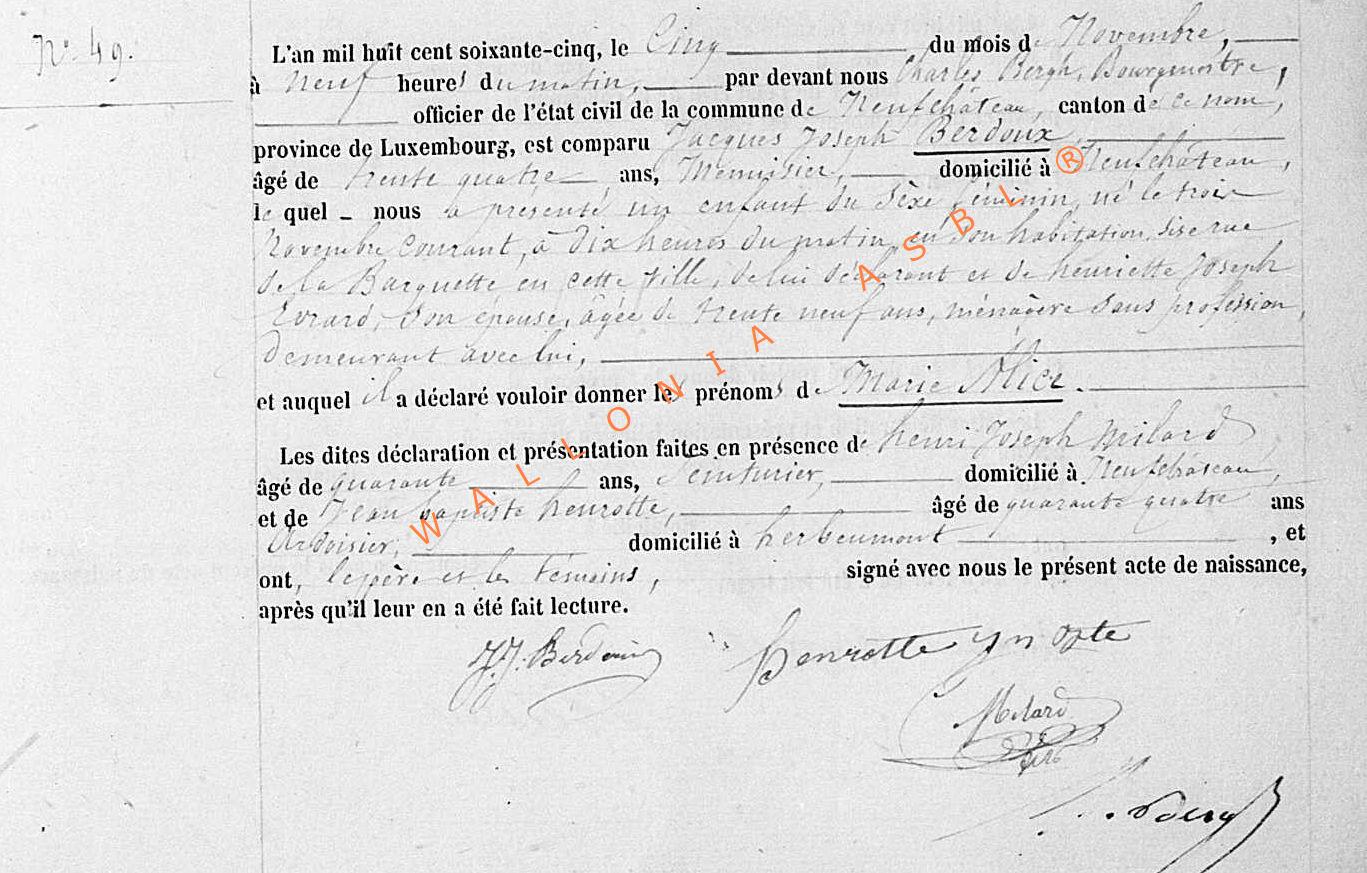 N° 49.
L'an mil huit cent soixante-cinq, le Cinq du mois de Novembre,
à neuf heures du matin, par devant nous Charles Bergh, Bourgmestre,
officier de l'état civil de la commune de Neufchâteau, canton de ce nom,
province de Luxembourg, est comparu Jacques Joseph Berdoux,
âgé de trente quatre ans, Menuisier, domicilié à Neufchâteau,
le quel nous a présenté un enfant du sèxe féminin, né le trois
Novembre courant, à dix heures du matin, en son habitation, sise rue
de la Barquette en cette ville, de lui déclarant et de henriette Joseph
Evrard, son épouse, âgée de trente neuf ans, ménagère sans profession,
demeurant avec lui,
et auquel il a déclaré vouloir donner les prénoms de Marie Alice.
Les dites déclaration et présentation faites en présence de henri Joseph Milard
âgé de quarante ans, domicilié à Neufchâteau,
et de Jean baptiste henrotte, âgé de quarante quatre ans
Ardoisier, domicilié à herbeumont, et
ont, le père et les témoins, signé avec nous le présent acte de naissance,
après qu'il leur en a été fait lecture.
J.J. Berdoux Henrotte
Milard
WALLONIA ASBL ®